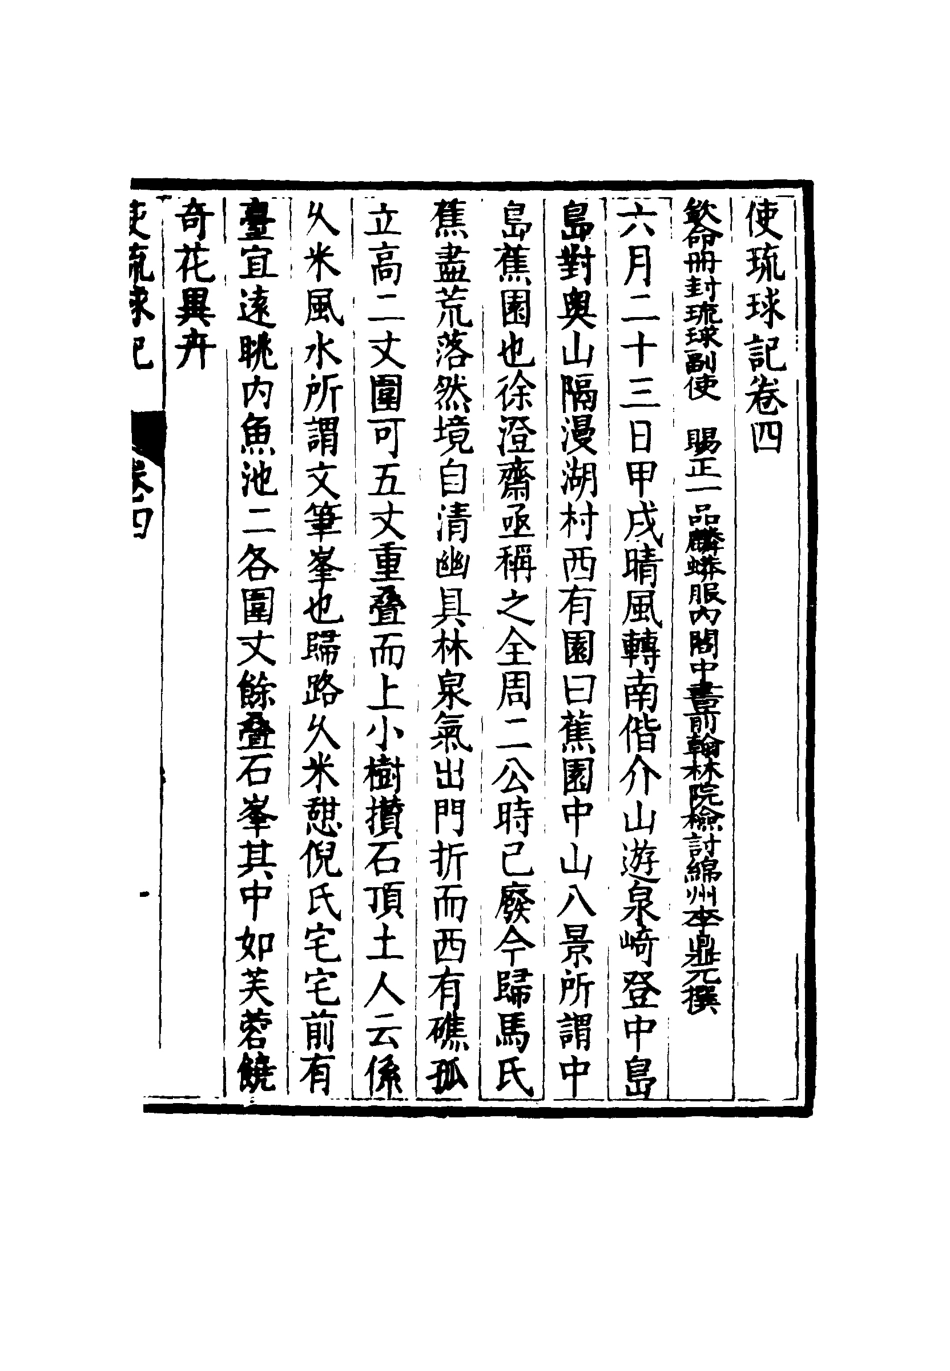 使琉球記卷四
欽命冊封琉球副使　賜正一品麟蟒服內閣中書前翰林院檢討綿州李鼎元撰
六月二十三日甲戌晴風轉南偕介山遊泉崎登中島
島對奧山隔漫湖村西有園曰蕉園中山八景所謂中
島蕉園也徐澄齋亟稱之全周二公時已廢今歸馬氏
蕉盡荒落然境自清幽具林泉氣出門折而西有礁孤
立高二丈圍可五丈重疊而上小樹攢石頂土人云係
久米風水所謂文筆峯也歸路久米憇倪氏宅宅前有
臺宜遠眺內魚池二各圍丈餘疊石峯其中如芙蓉饒
奇花異卉
使琉球記　卷四